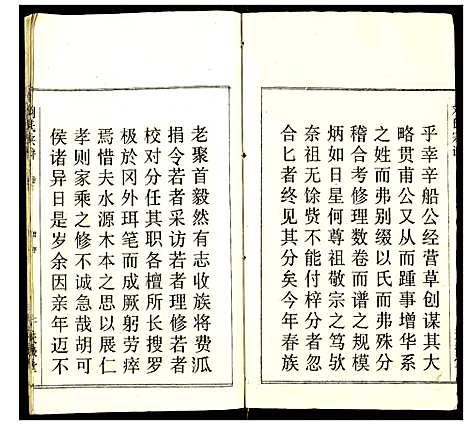 乎幸辛船公经营草创谋其大
略贯甫公又从而踵事增华系
之姓而弗别缀以氏而弗殊分
稽合考修理数卷而谱之规模
炳如日星何尊祖敬宗之笃欤
奈祖无馀赀不能付梓分者忽
合匕者终见其分矣今年春族
老聚首毅然有志收族将费派
捐令若者采访若者理修若者
校对分任其职各檀所长搜罗
极於冈外珥笔而成厥躬劳瘁
焉惜夫水源木本之思以展仁
孝则家乘之修不诚急哉胡可
侯诸异日是岁余因亲年迈不